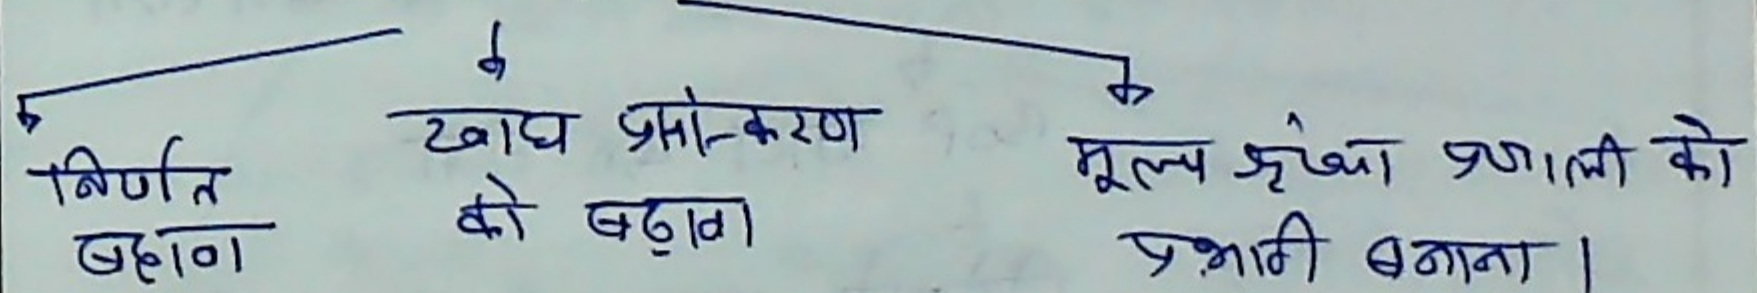 निर्णत
बढ़ाना
खाद्य प्रसंस्करण
को बढ़ावा
मूल्य श्रृंखा प्रणाली को
प्रभावी बनाना।